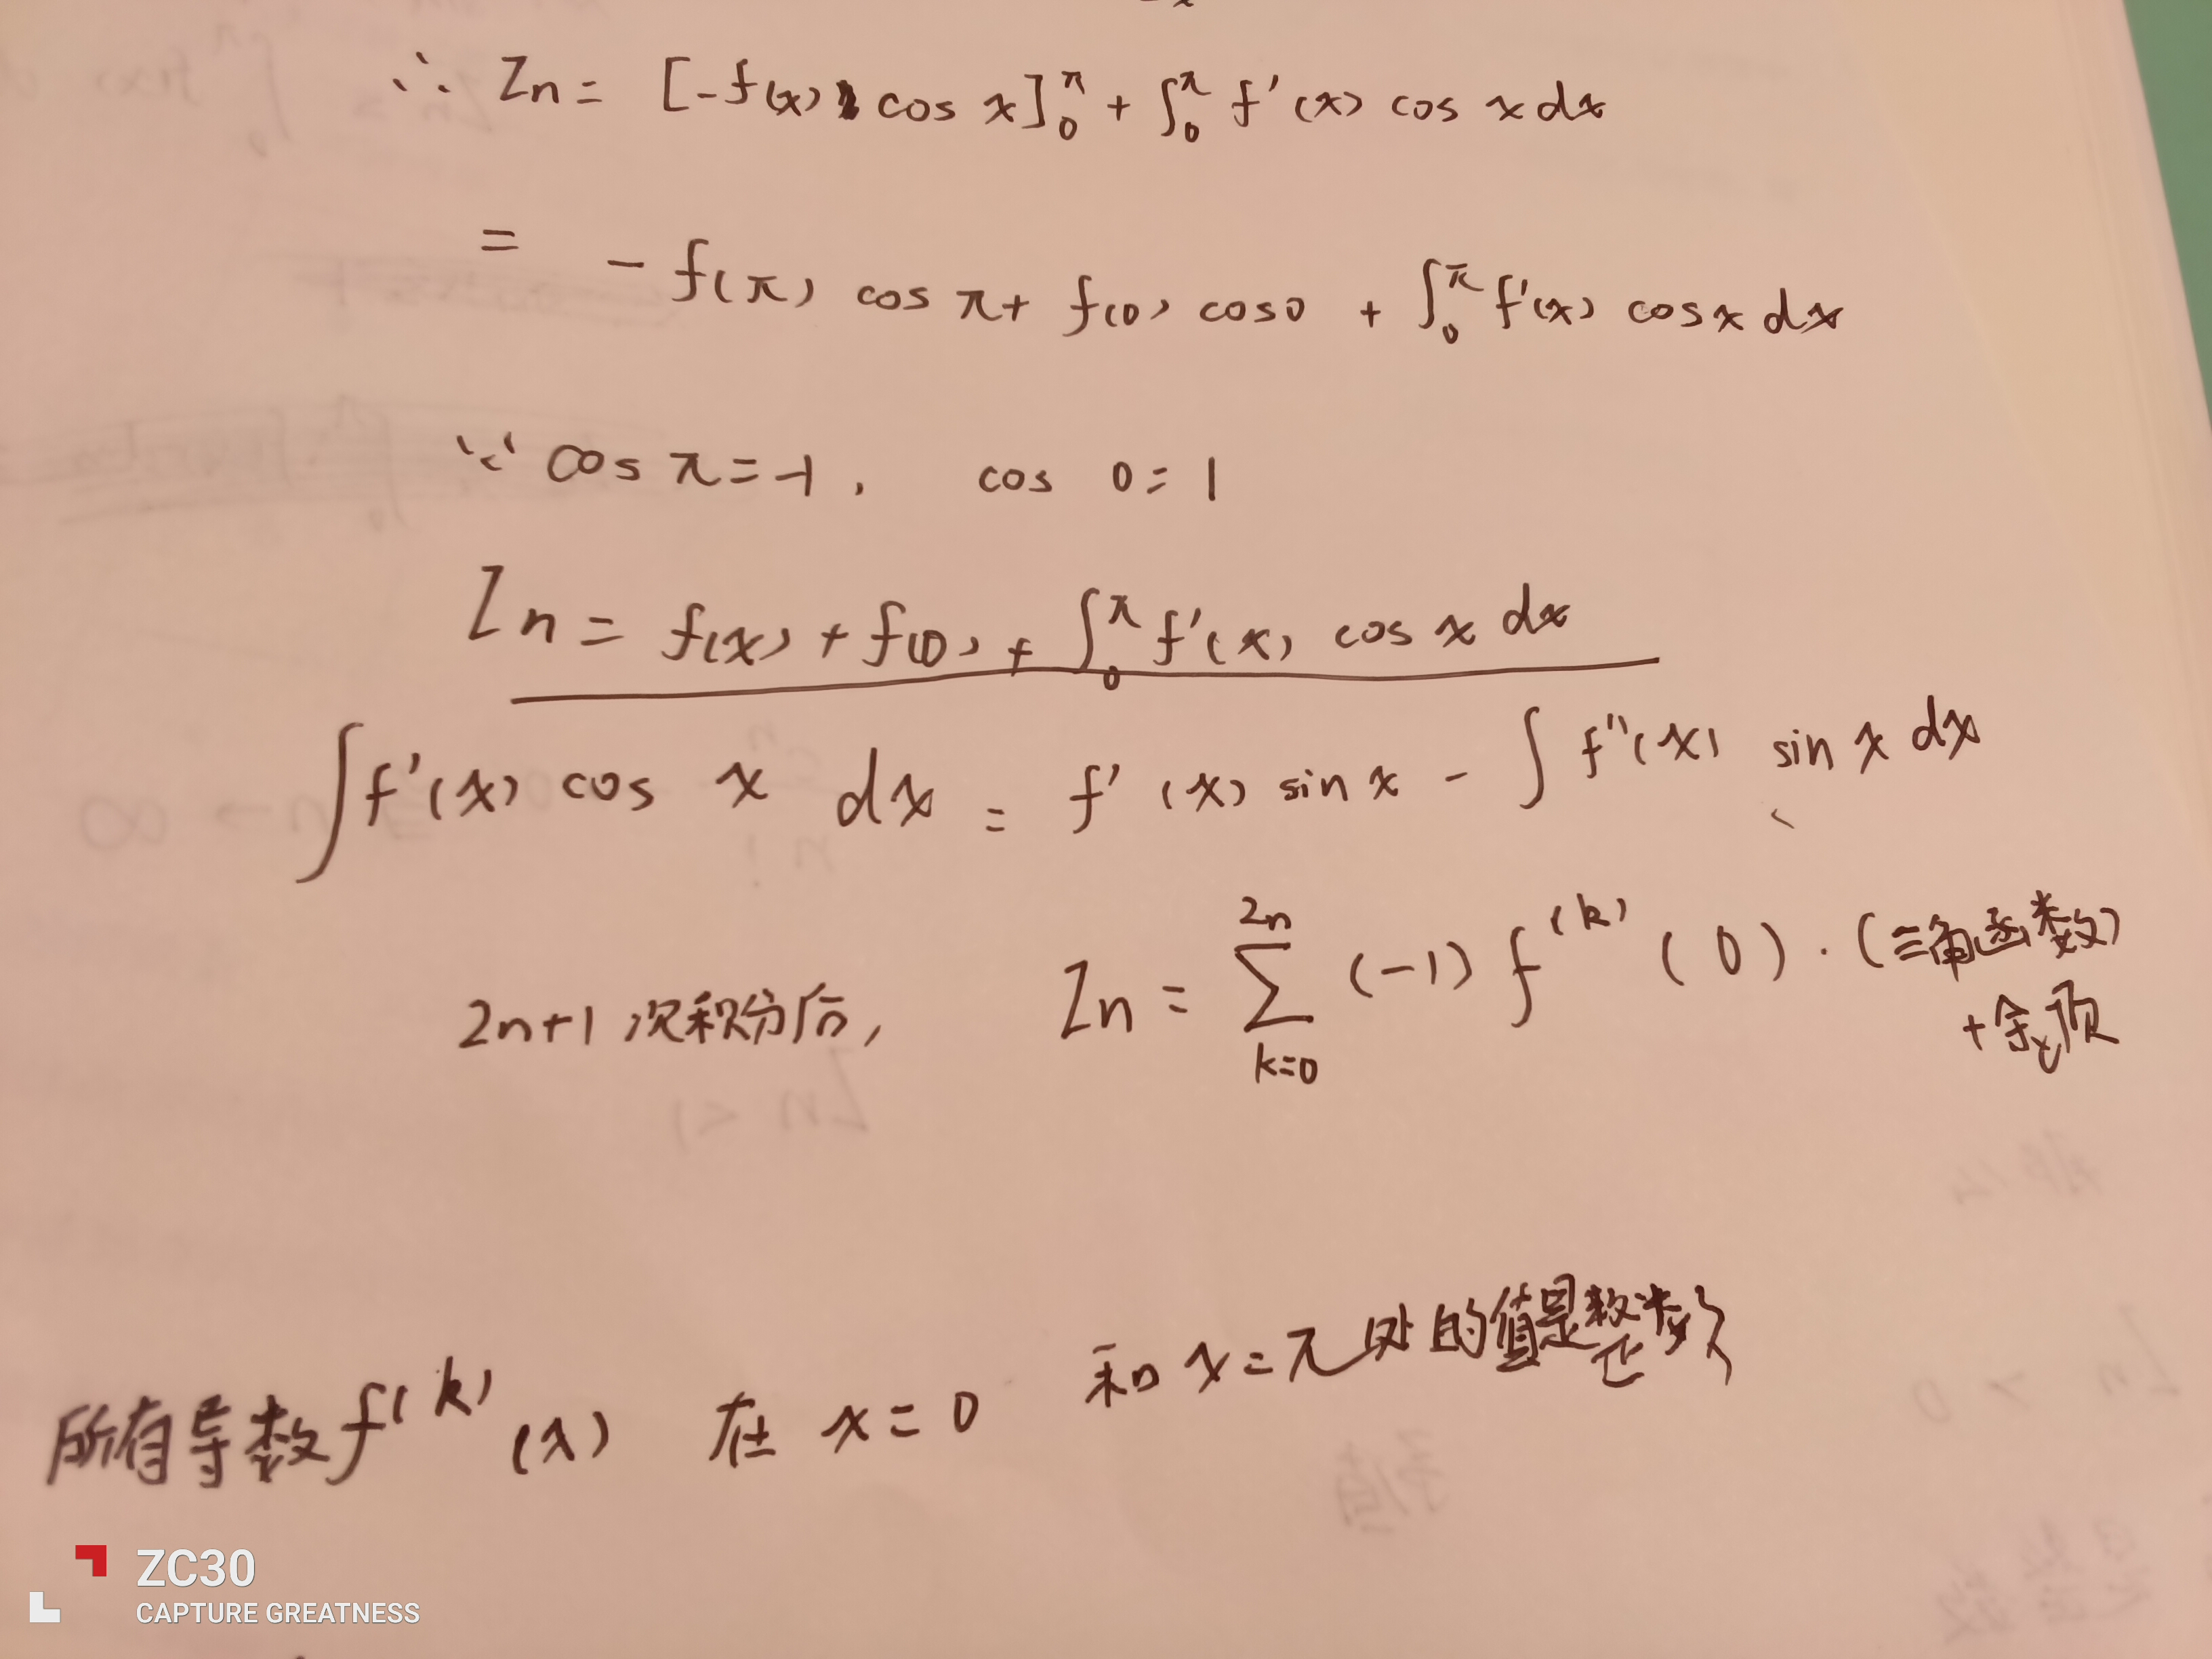 ∴ Zn = [-f(x) cos x]₀^π + ∫₀^π f'(x) cos x dx
= -f(π) cos π + f(0) cos 0 + ∫₀^π f'(x) cos x dx
∵ cos π = -1, cos 0 = 1
Zn = f(x) + f(0) + ∫₀^π f'(x) cos x dx
∫ f'(x) cos x dx = f'(x) sin x - ∫ f''(x) sin x dx
2n+1 次积分后, Zn = ∑_{k=0}^{2n} (-1) f^(k) (0) · (三角函数)
+余项
所有导数 f^(k) (x) 在 x = 0 和 x = π 处的值是整数
ZC30
CAPTURE GREATNESS